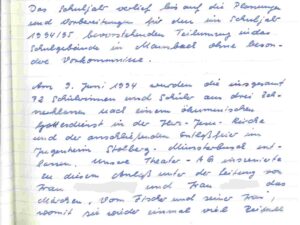 Das Schuljahr verlief bis auf die Planungen
und Vorbereitungen für den im Schuljahr
1994/95 bevorstehenden Teilumzug in das
Schulgebäude in Mausbach ohne beson-
dere Vorkommnisse.
Am 9. Juni 1994 wurden die insgesamt
72 Schülerinnen und Schüler aus drei 
nach einem ökumenischen
Gottesdienst in der Herz-Jesu-Kirche
und der anschließenden Entlaßfeier im
Jugendheim Stolberg-Münsterbusch ent-
lassen. Unsere Theater-AG inszenierte
zu diesem Anlaß unter der Leitung von
Frau und Frau das
Märchen „Vom Fischer und seiner Frau",
womit sie wieder einmal viel Beifall